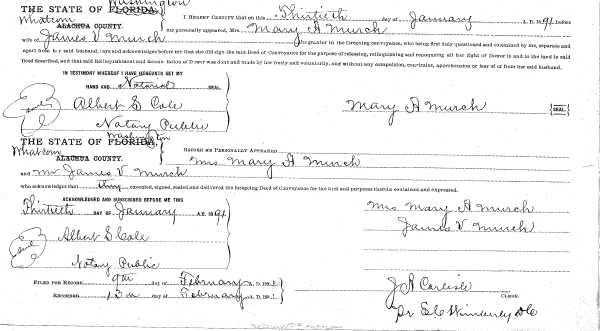 Washington
THE STATE OF FLORIDA,
Whatcom
ALACHUA COUNTY.
I HEREBY CERTIFY that on this Thirtieth day of January A. D. 1891 before
me personally appeared, Mrs. Mary A Murch
wife of James V. Murch the grantor in the foregoing conveyance, who being first duly questioned and examined by me, separate and
apart from her said husband, says and acknowledges before me that she did sign the said Deed of Conveyance for the purpose of releasing, relinquishing and renouncing all her right of Dower in and to the land in said
Deed described, and that said Relinquishment and Renunciation of Dower was done and made by her freely and voluntarily, and without any compulsion, constraint, apprehension or fear of or from her said husband.
IN TESTIMONY WHEREOF I HAVE HEREUNTO SET MY
HAND AND Notarial SEAL
Albert S Cole
Notary Public
Mary A Murch
SEAL
Washington
THE STATE OF FLORIDA,
Whatcom
ALACHUA COUNTY.
BEFORE ME PERSONALLY APPEARED
Mrs Mary A Murch
and Mr James V Murch
who acknowledges that they executed, signed, sealed and delivered the foregoing Deed of Conveyance for the uses and purposes therein contained and expressed.
ACKNOWLEDGED AND SUBSCRIBED BEFORE ME THIS
Thirtieth DAY OF January A.D. 1891
Albert S Cole
Notary Public
Mrs Mary A Murch
James V Murch
FILED FOR RECORD 9th day of February A. D. 1891
RECORDED day of February A. D. 1891
J A Carlisle
CLERK.